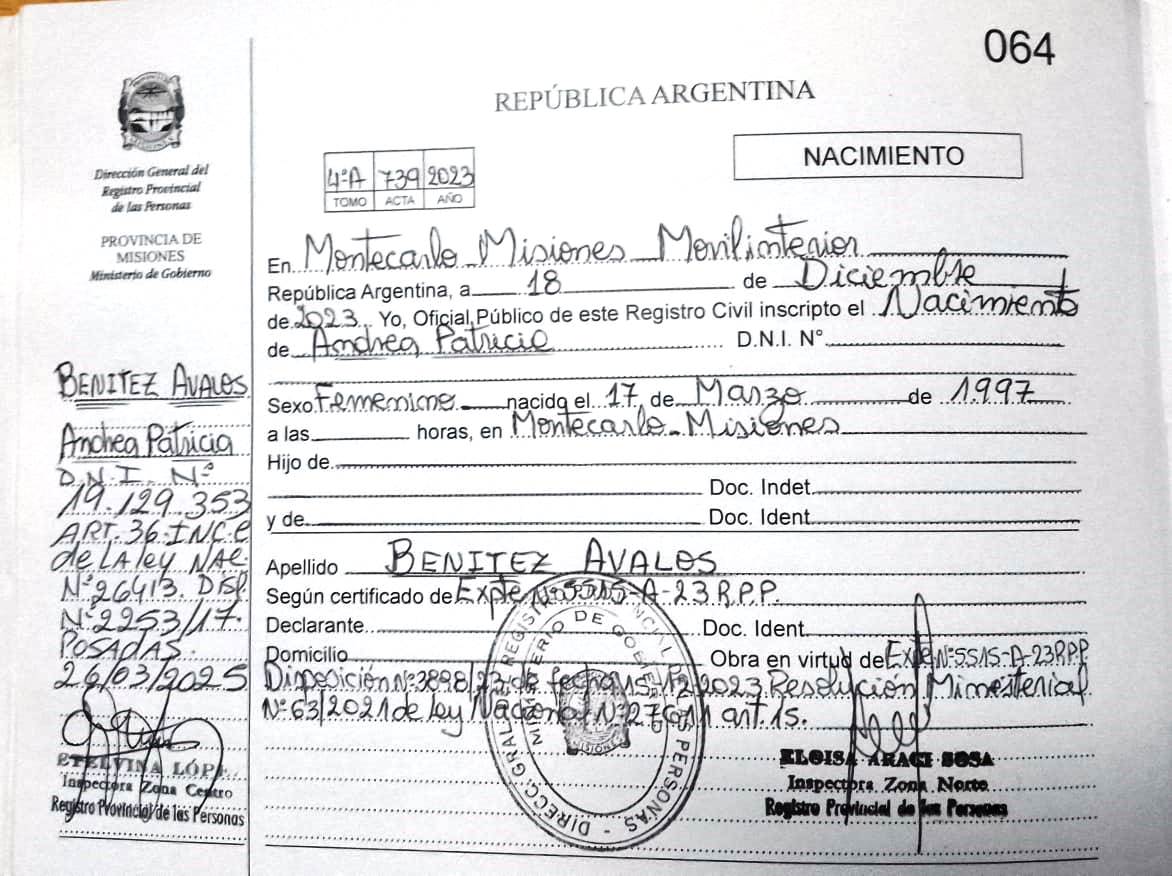 064
REPÚBLICA ARGENTINA
NACIMIENTO
Dirección General del
Registro Provincial
de las Personas
PROVINCIA DE
MISIONES
Ministerio de Gobierno
4ºA 739 2023
TOMO ACTA AÑO
En Montecarlo Misiones Movilinterior
República Argentina, a 18 de Diciembre
de 2023 Yo, Oficial Público de este Registro Civil inscripto el Nacimiento
de Andrea Patricia D.N.I. Nº
Sexo Femenino nacido el 17 de Marzo de 1.997
a las horas, en Montecarlo - Misiones
Hijo de
Doc. Indet.
y de Doc. Ident.
Apellido BENITEZ AVALOS
Según certificado de Expte Nº 5515-A-23 R.P.P.
Declarante Doc. Ident.
Domicilio Obra en virtud de Expte Nº 5515-A-23 RPP
Disposición Nº 3898/23 de fecha 15/12/2023 Resolución Ministerial
Nº 63/2021 de ley Nacional Nº 27611 art. 15.
BENITEZ AVALOS
Andrea Patricia
D.N.I. Nº
19.129.353
ART. 36 INC C
de LA ley NAC.
Nº 26413. DISP.
Nº 2253/17.
POSADAS.
26/03/2025
ETELVINA LÓPE
Inspectora Zona Centro
Registro Provincial de las Personas
DIRECC. GRAL. REGIST PROVINCIAL DE LAS PERSONAS
MINISTERIO DE GOBIERNO
MISIONES
ELOISA ARACI SOSA
Inspectora Zona Norte
Registro Provincial de las Personas